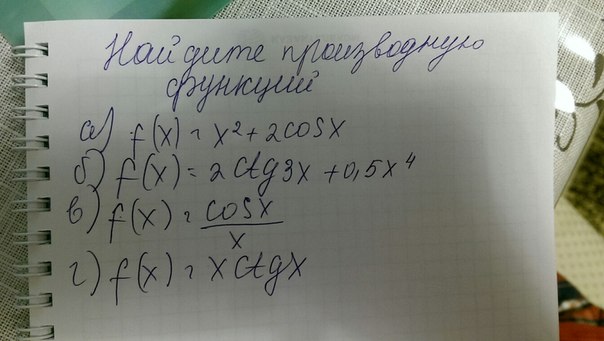 Найдите производную
функций
а) f(x) = x² + 2cosx
б) f(x) = 2ctg3x + 0,5x⁴
в) f(x) = cosx
x
г) f(x) = x ctgx